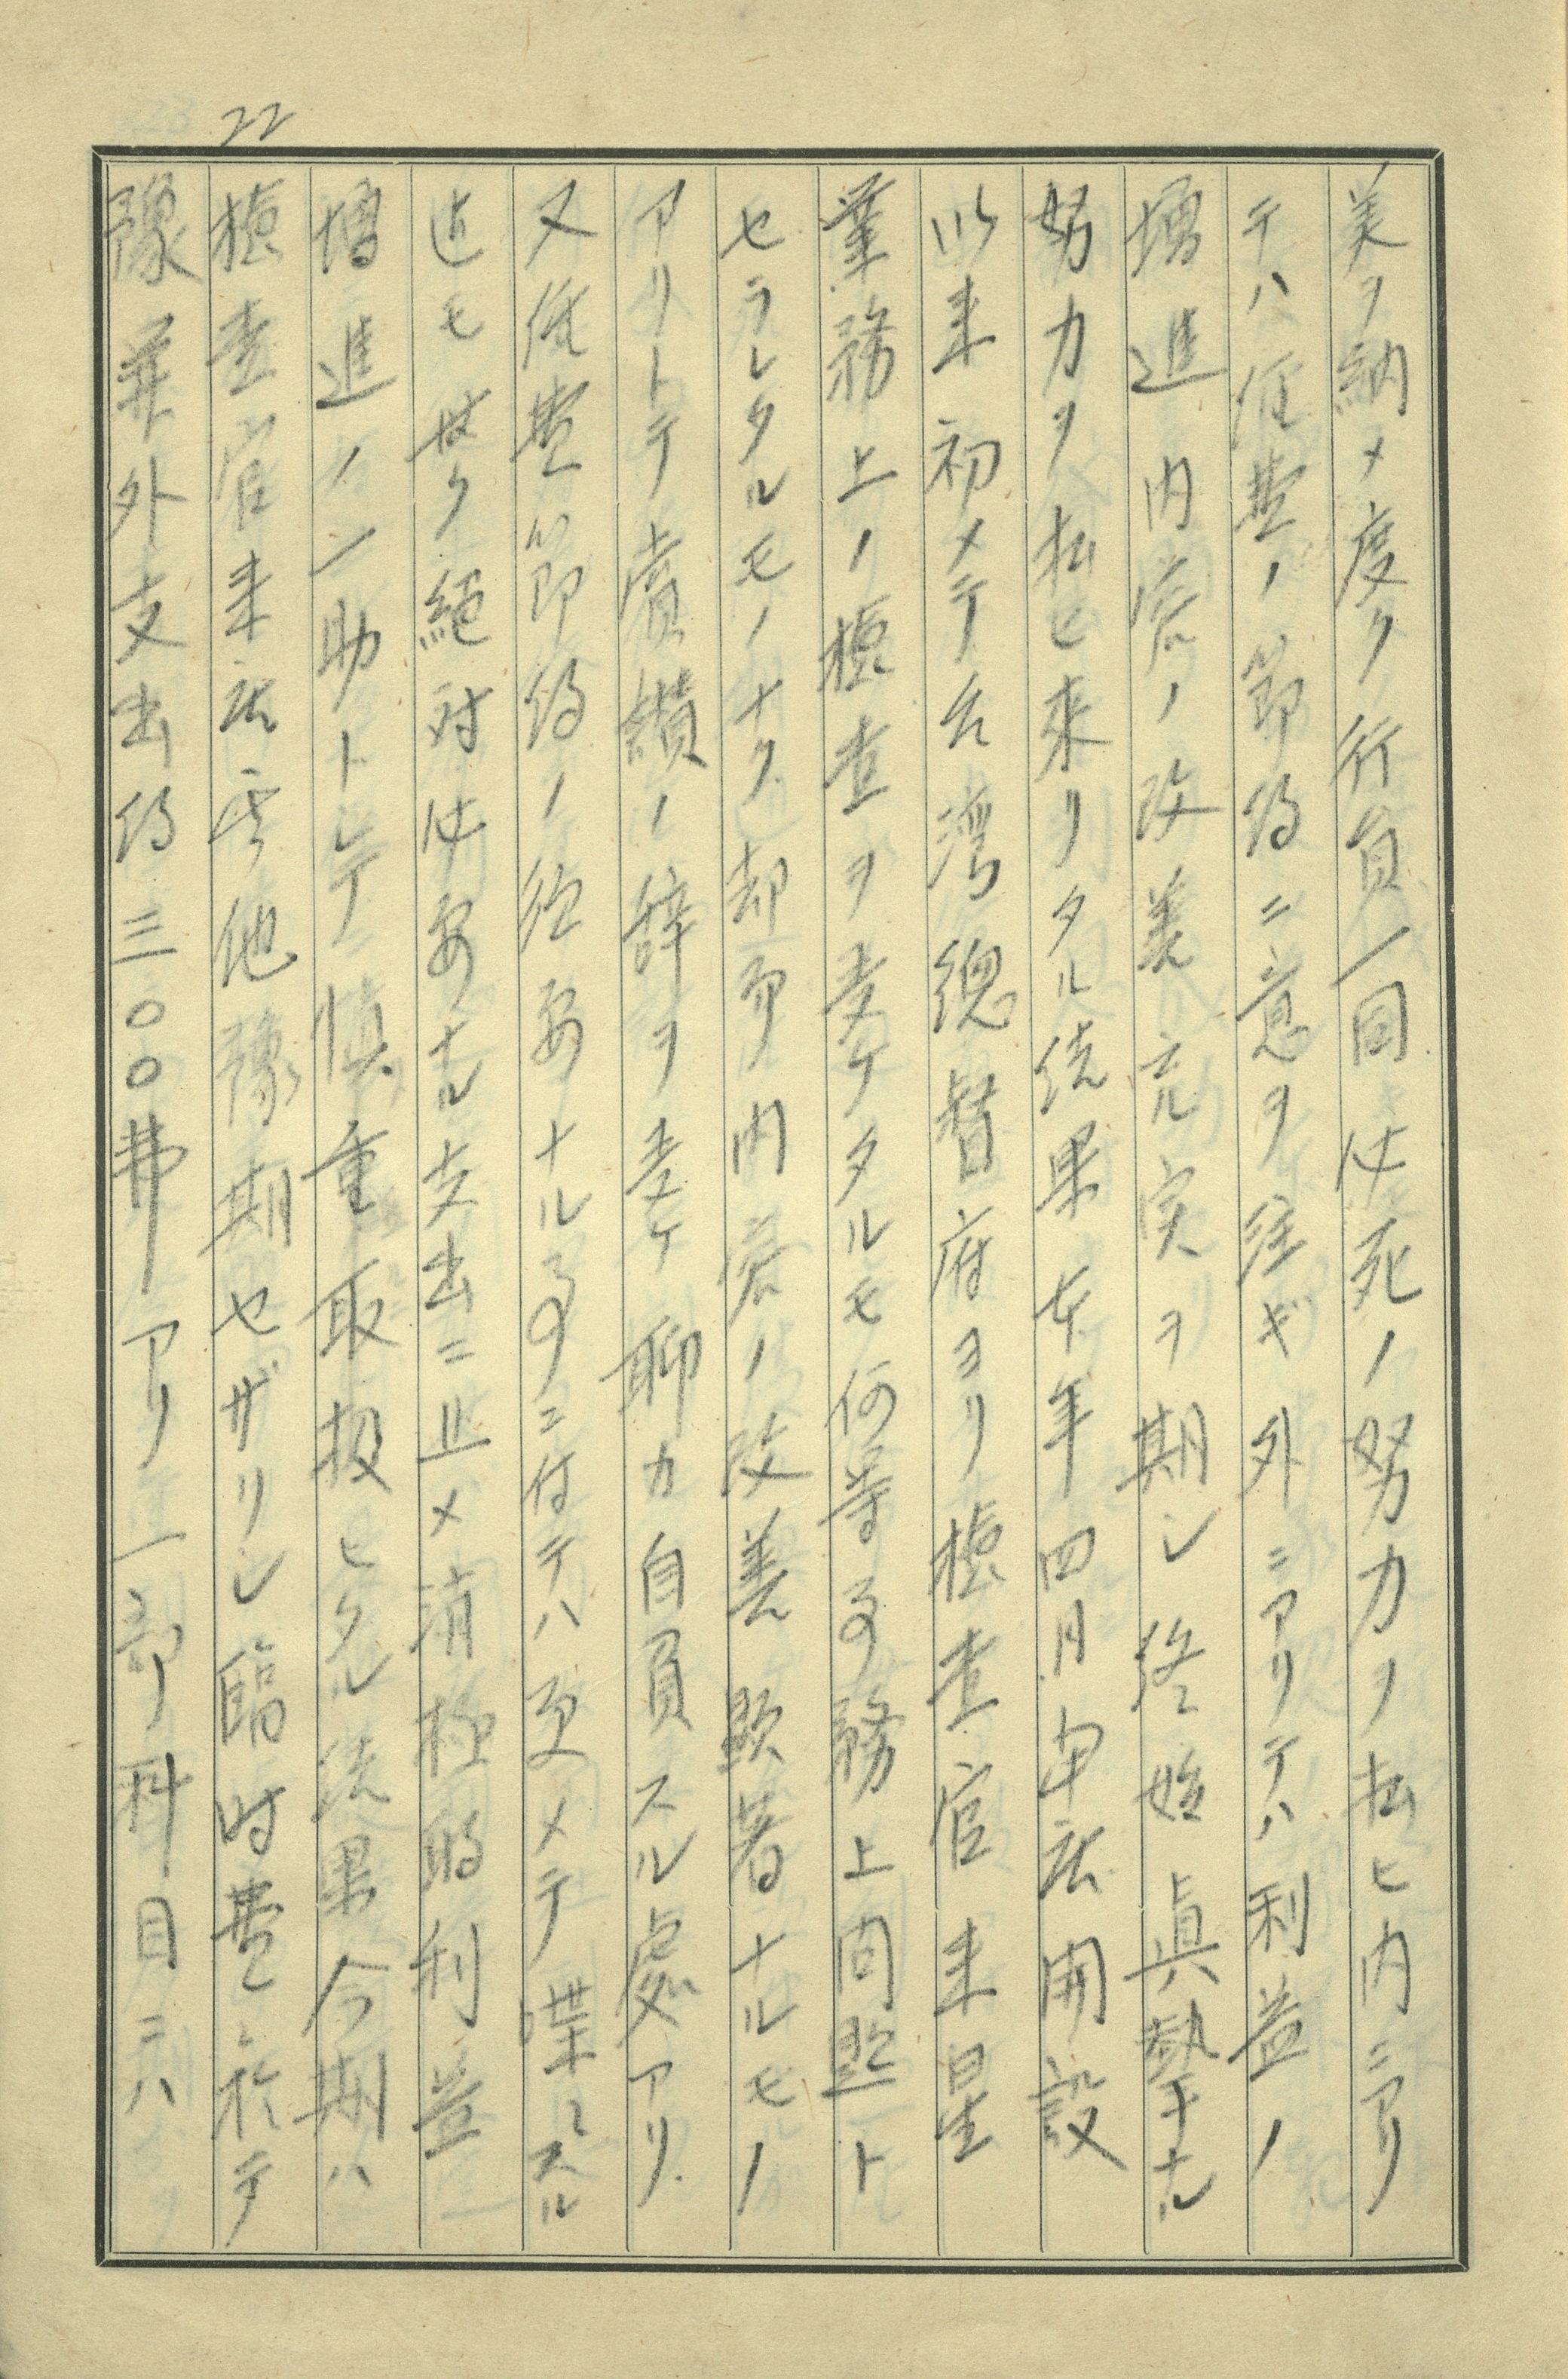 22
美ヲ納メ度ク行員一同必死ノ努力ヲ払ヒ内ニアリ
テハ経費ノ節約ニ意ヲ注ギ外ニアリテハ利益ノ
増進内容ノ改善充実ヲ期シ終始真摯ナル
努力ヲ払ヒ来リタル結果本年四月中店開設
以来初メテ台湾総督府ヨリ検査官来星
業務上ノ検査ヲ受ケタルモ何等事務上問題ト
セラレタルモノナク却而内容ノ改善顕著ナルモノ
アリトテ賞讃ノ辞ヲ受ケ聊カ自負スル處アリ
又経費節約ノ必要ナル事ニ付テハ更メテ喋々スル
迄モ無ク絶対必要ナル支出ニ止メ消極的利益
増進ノ一助トシテ慎重取扱ヒタル結果今期ハ
検査官来店等他豫期セザリシ臨時費ニ於テ
豫算外支出約三〇〇弗アリ一部ノ科目ニハ